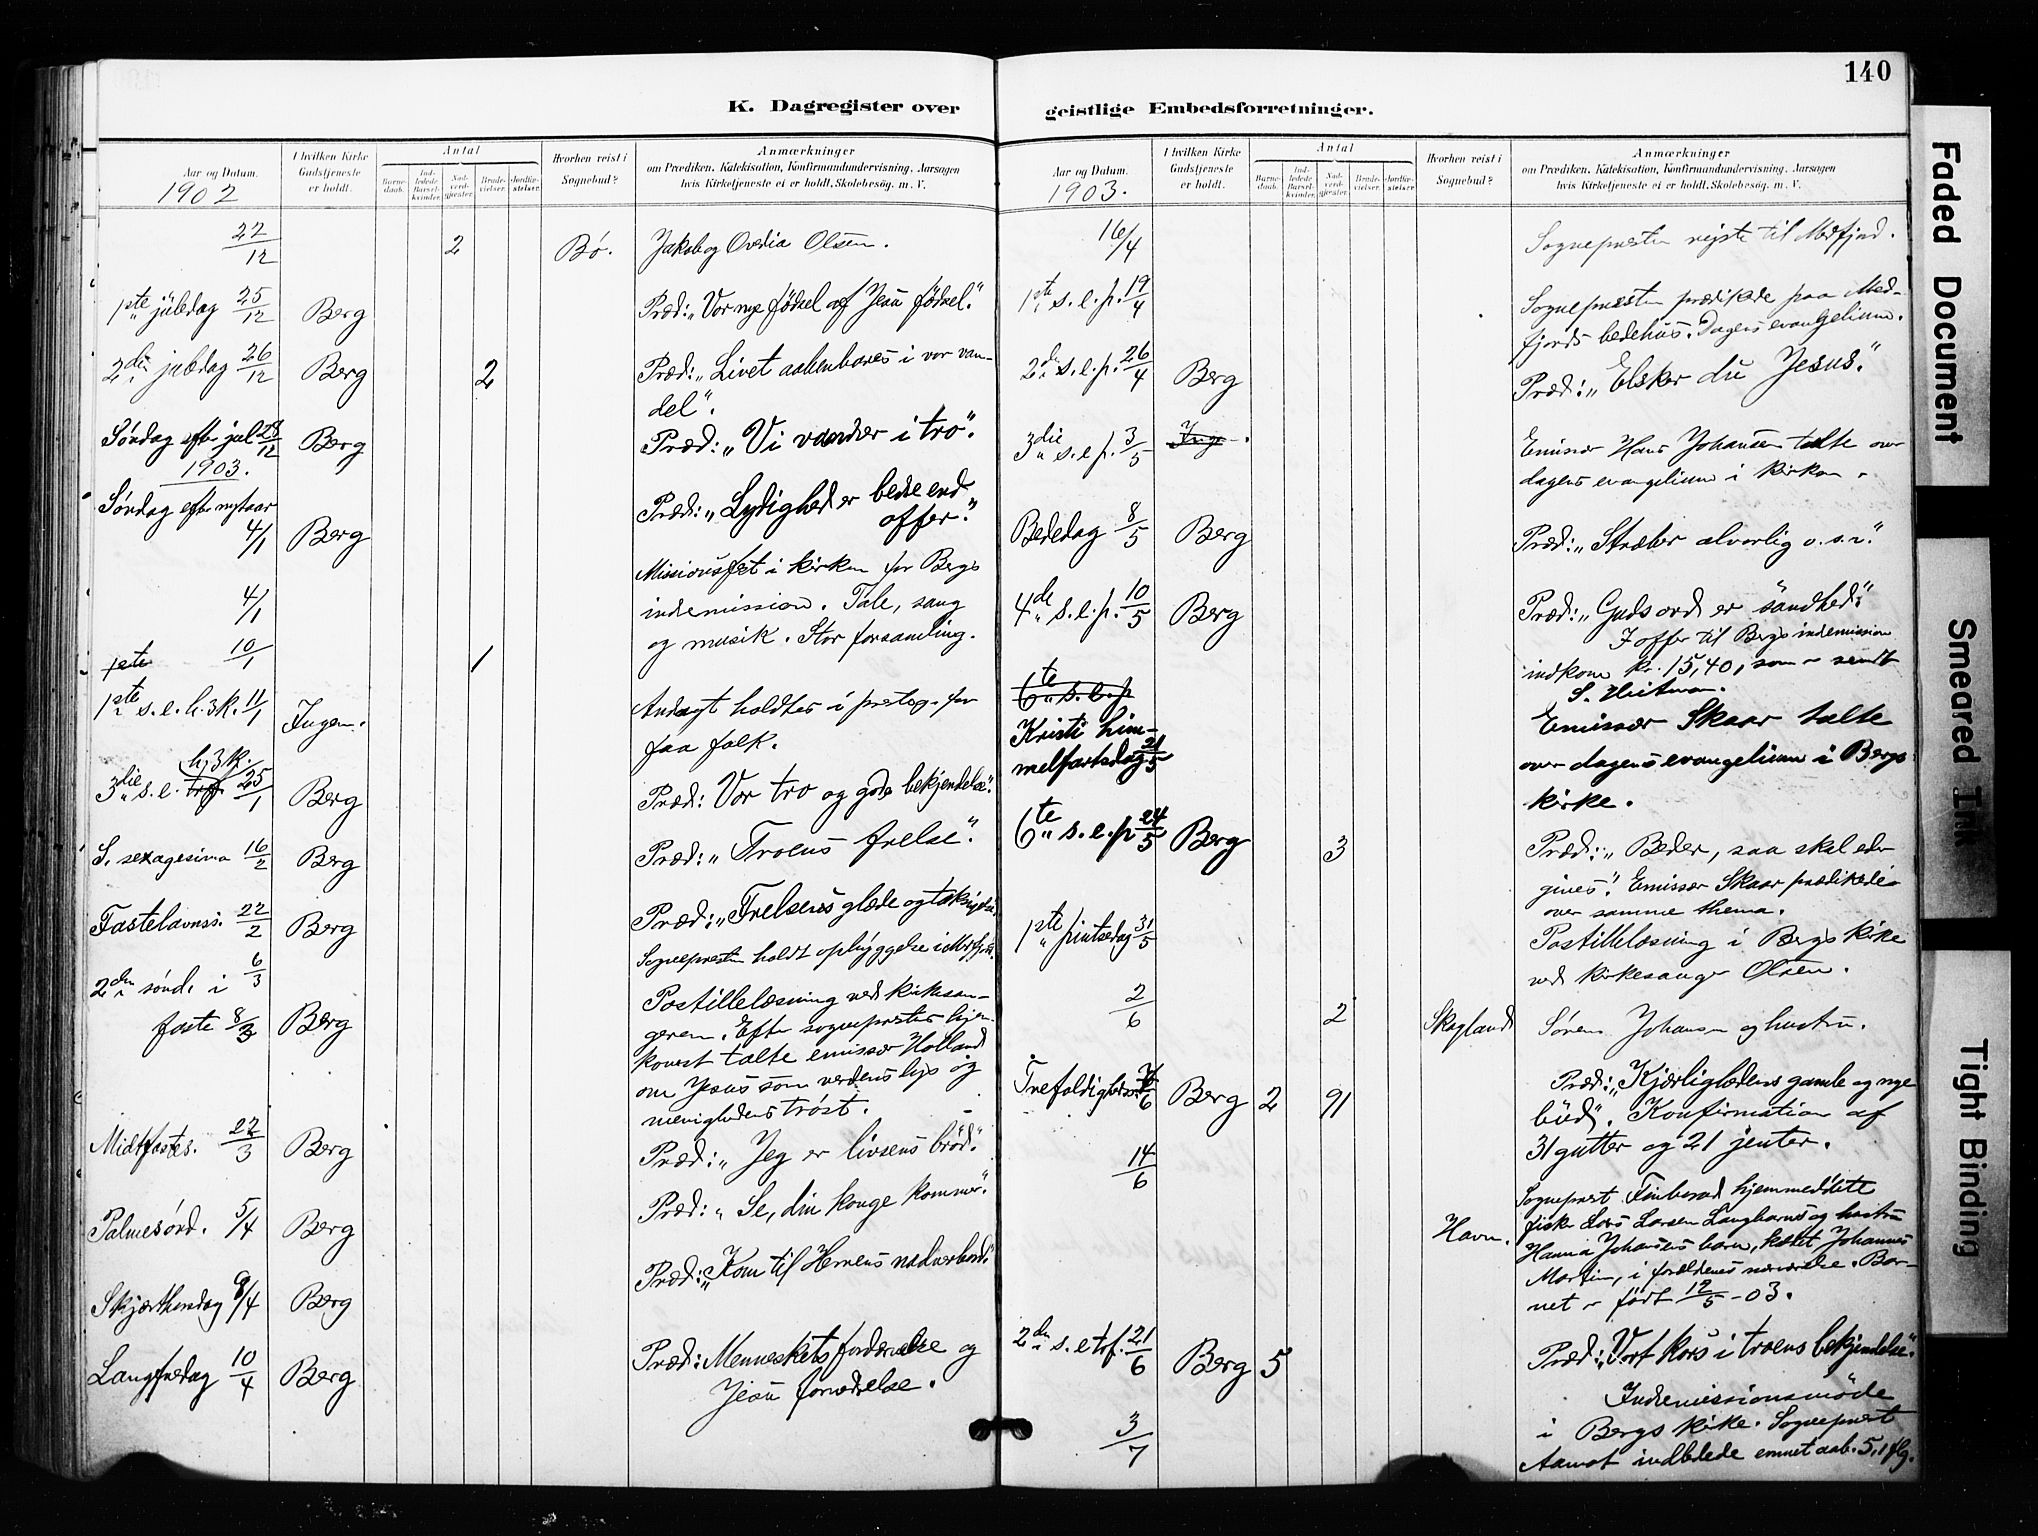 140
K. Dagregister over
geistlige Embedsforretninger.
Aar og Datum.
1902
I hvilken Kirke Gudstjeneste er holdt.
Antal
Barnedaab.
Indledede Barselkvinder.
Nadverdgjester.
Brudevielser.
Jordfæstelser.
Hvorhen reist i Sognebud?
Anmærkninger
om Prædiken, Katekisation, Konfirmandundervisning, Aarsagen
hvis Kirketjeneste ei er holdt, Skolebesøg. m. V.
22/12 2 Bø. Jakob og Ovedia Olsen.
1ste juledag 25/12 Berg Præd: „Vor nye fødsel af Jesu fødsel."
2den juledag 26/12 Berg 2 Præd: „Livet aabenbares i vor van-
del".
Søndag efter jul 28/12 Berg Præd: „Vi vandrer i tro".
1903.
Søndag efter nytaar
4/1 Berg Præd: „Lydighed er bedre end
offer."
4/1 Missionsfest i kirken for Bergs
indremission. Tale, sang
og musik. Stor forsamling.
1ste 10/1 1
1ste s. e. h. 3 k. 11/1 Ingen. Andagt holdtes i for
faa folk.
h. 3 k.
3die s. e. 25/1 Berg Præd: Vor tro og gode bekjendelse."
S. sexagesima 16/2 Berg Præd: „Troens frelse".
Fastelavnss. 22/2 Berg Præd: „Frelsens glæde og
6/3 Sognepresten holdt opbyggelse i
2den sønd. i
faste 8/3 Berg Postillelæsning ved kirkesan-
geren. Efter sogneprestens hjem-
komst talte emissær Holland
om Jesus som verdens lys og
menighedens trøst.
Midtfastes. 22/3 Berg Præd: „Jeg er livsens brød."
Palmesønd. 5/4 Berg Præd: „Se, din konge kommer."
Skjærthorsdag 9/4 Berg Præd: „Kom til Herrens nadverbord."
Langfredag 10/4 Berg Præd: Menneskets fordærvelse og
Jesu fornedrelse.
Aar og Datum.
1903.
I hvilken Kirke Gudstjeneste er holdt.
Antal
Barnedaab.
Indledede Barselkvinder.
Nadverdgjester.
Brudevielser.
Jordfæstelser.
Hvorhen reist i Sognebud?
Anmærkninger
om Prædiken, Katekisation, Konfirmandundervisning, Aarsagen
hvis Kirketjeneste ei er holdt, Skolebesøg. m. V.
16/4 Sognepresten rejste til Medfjord.
1ste s. e. p. 19/4 Sognepresten prædikede paa Med-
fjords bedehus. Dagens evangelium.
2den s. e. p. 26/4 Berg Præd: „Elsker du Jesus."
3die s. e. p. 3/5 Inge Emissær Hans Johansen talte over
dagens evangelium i kirken.
Bededag 8/5 Berg Præd: „Stræber alvorlig o. s. v."
4de s. e. p. 10/5 Berg Præd: „Guds ord er sandhed".
I offer til Bergs indremission
indkom kr. 15,40, som er sendt
S.
6te s. e. p
Kristi him-
melfartsdag 21/5 Emissær Skaar talte
over dagens evangelium i Bergs
kirke.
6te s. e. p 24/5 Berg 3 Præd: „Beder, saa skal eder
gives." Emissær Skaar prædikede
over samme thema.
1ste pintsedag 31/5 Postillelæsning i Bergs kirke
ved kirkesanger Olsen.
2/6 2 Skogland Søren Johansen og hustru.
Trefoldighedss. 7/6 Berg 2 91 Præd: „Kjærlighedens gamle og nye
bud". Konfirmation af
31 gutter og 21 jenter.
14/6 Havn. Sogneprest hjemmedøbte
fisker Lars Larsen og hustru
Hanna Johansens barn, kaldet Johannes
Martin, i forældrenes nærværelse. Bar-
net er født 12/5 -03.
2den s. e. trf. 21/6 Berg 5 Præd: „Vort kors i troens bekjendelse."
3/7 Indremissionsmøde
i Bergs kirke. Sogneprest
Aamot indledede emnet aab. 5,1 flg.
Faded Document
Smeared Ink
Tight Binding